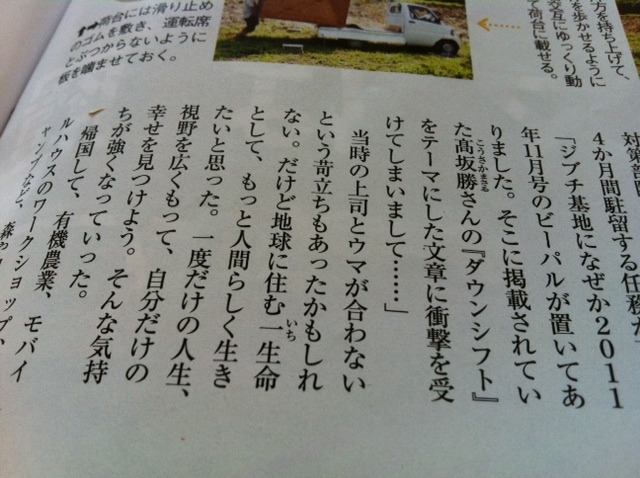 方を持ち上げて、
を歩かせるように
交互にゆっくり動
て荷台に載せる。
荷台には滑り止め
のゴムを敷き、運転席
とぶつからないように
板を噛ませておく。
4か月間駐留する任務だ
「ジブチ基地になぜか2011
年11月号のビーパルが置いてあ
りました。そこに掲載されてい
た髙坂勝さんの『ダウンシフト』
こうさかまさる
をテーマにした文章に衝撃を受
けてしまいまして……」
当時の上司とウマが合わない
という苛立ちもあったかもしれ
ない。だけど地球に住む一生命
いち
として、もっと人間らしく生き
たいと思った。一度だけの人生、
視野を広くもって、自分だけの
幸せを見つけよう。そんな気持
ちが強くなっていった。
帰国して、有機農業、モバイ
ルハウスのワークショップ、